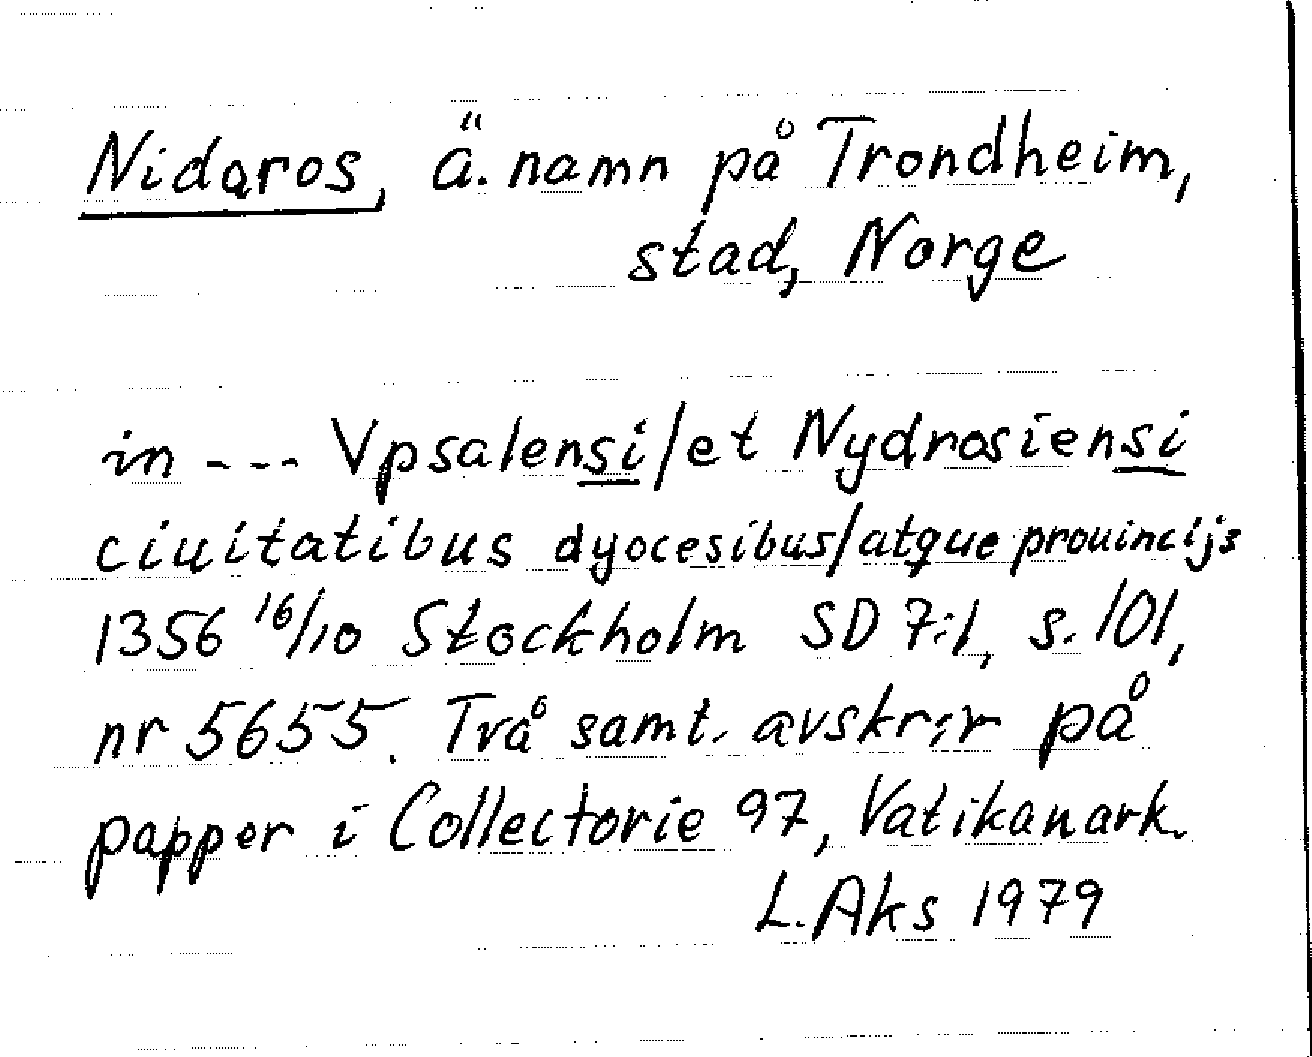 Nidaros, ä. namn på Trondheim,
stad, Norge
in --- Vpsalensi/et Nydrosiensi
ciuitatibus dyocesibus/atque prouincijs
1356 16/10 Stockholm SD 7:1, s. 101,
nr 5655. Två samt. avskrir på
papper i Collectorie 97, Vatikanark.
L. Aks 1979